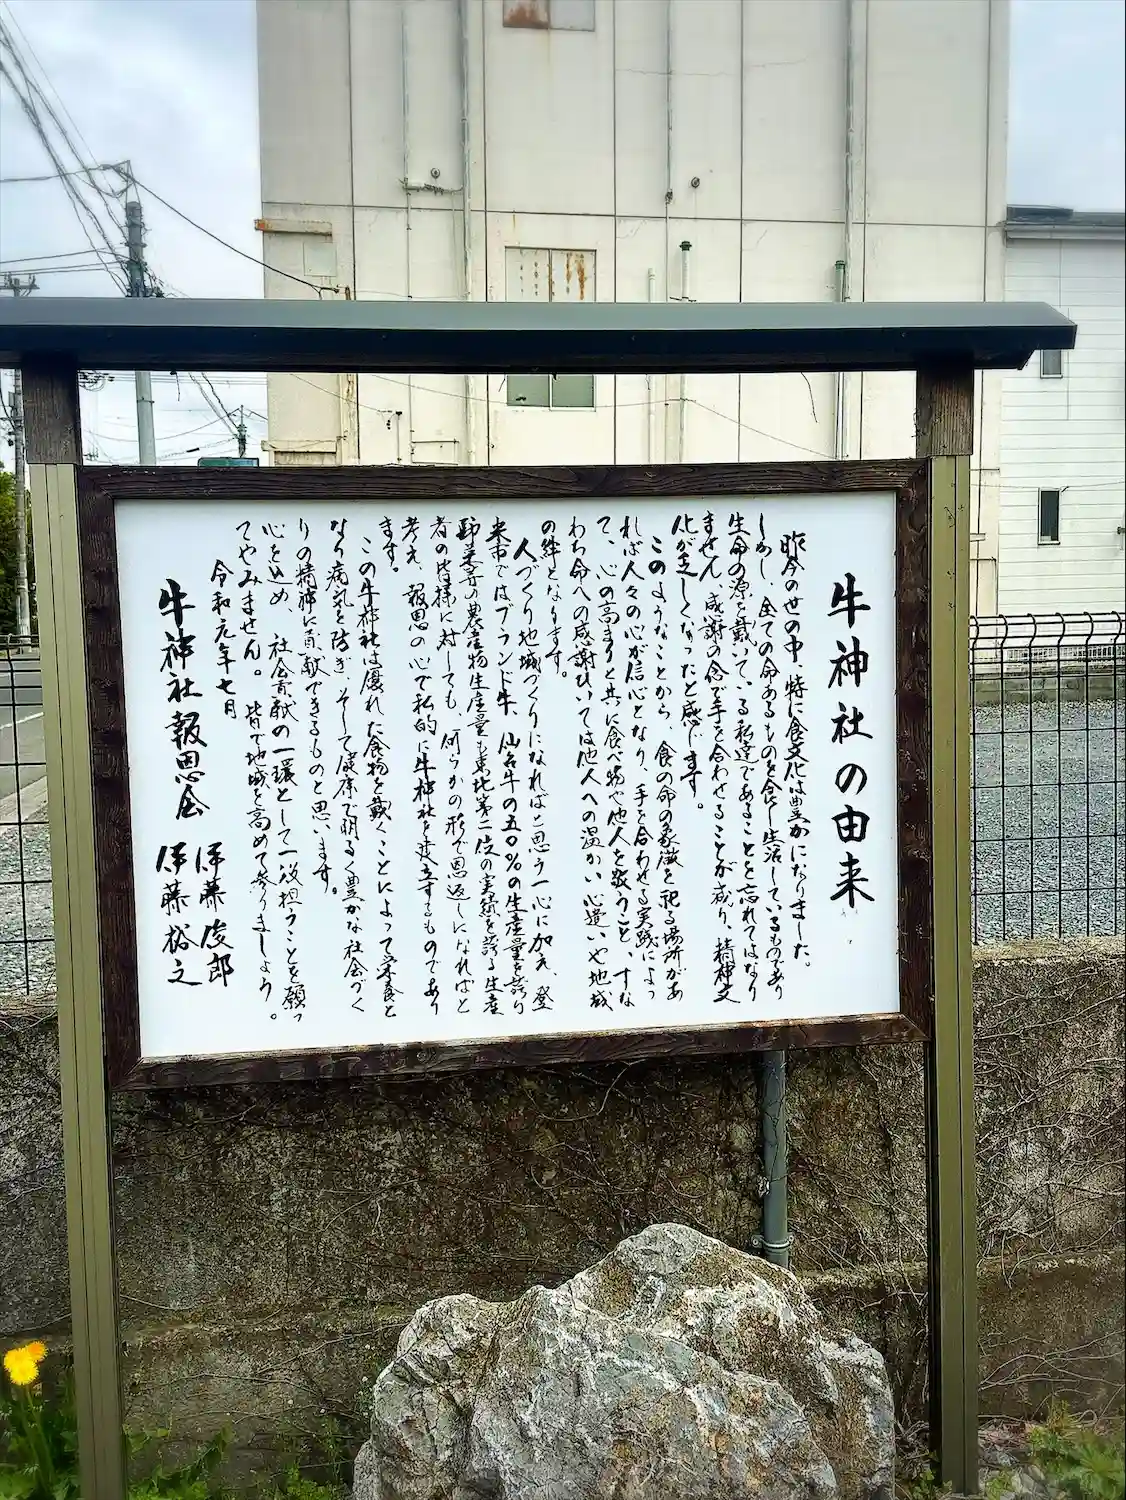 牛神社の由来
昨今の世の中、特に食文化は豊かになりました。
しかし、全ての命あるものを食し生活しているものであり
生命の源を戴いている私達であることを忘れてはなり
ません。感謝の念で手を合わせることが減り、精神文
化が乏しくなったと感じます。
このようなことから、食の命の象徴を祀る場所があ
れば人々の心が信心となり、手を合わせる実践によっ
て、心の高まりと共に食べ物や他人を敬うこと、すな
わち命への感謝ひいては他人への温かい心遣いや地域
の絆となります。
人づくり地域づくりになればと思う一心に加え、登
米市ではブランド牛、仙台牛の五〇%の生産量を誇り
野菜等の農産物生産量も東北第二位の実績を誇る生産
者の皆様に対しても、何らかの形で恩返しになればと
考え、報恩の心で私的に牛神社を建立するものであり
ます。
この牛神社は優れた食物を戴くことによって栄養と
なり病気を防ぎ、そして健康で明るく豊かな社会づく
りの精神に貢献できるものと思います。
心を込め、社会貢献の一環として一役担うことを願っ
てやみません。皆で地域を高めて参りましょう。
令和元年七月
牛神社報恩会 伊藤俊郎
伊藤裕之